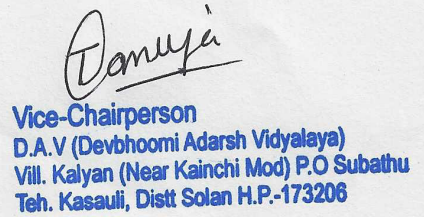 Tanuja
Vice-Chairperson
D.A.V (Devbhoomi Adarsh Vidyalaya)
Vill. Kalyan (Near Kainchi Mod) P.O Subathu
Teh. Kasauli, Distt Solan H.P.-173206